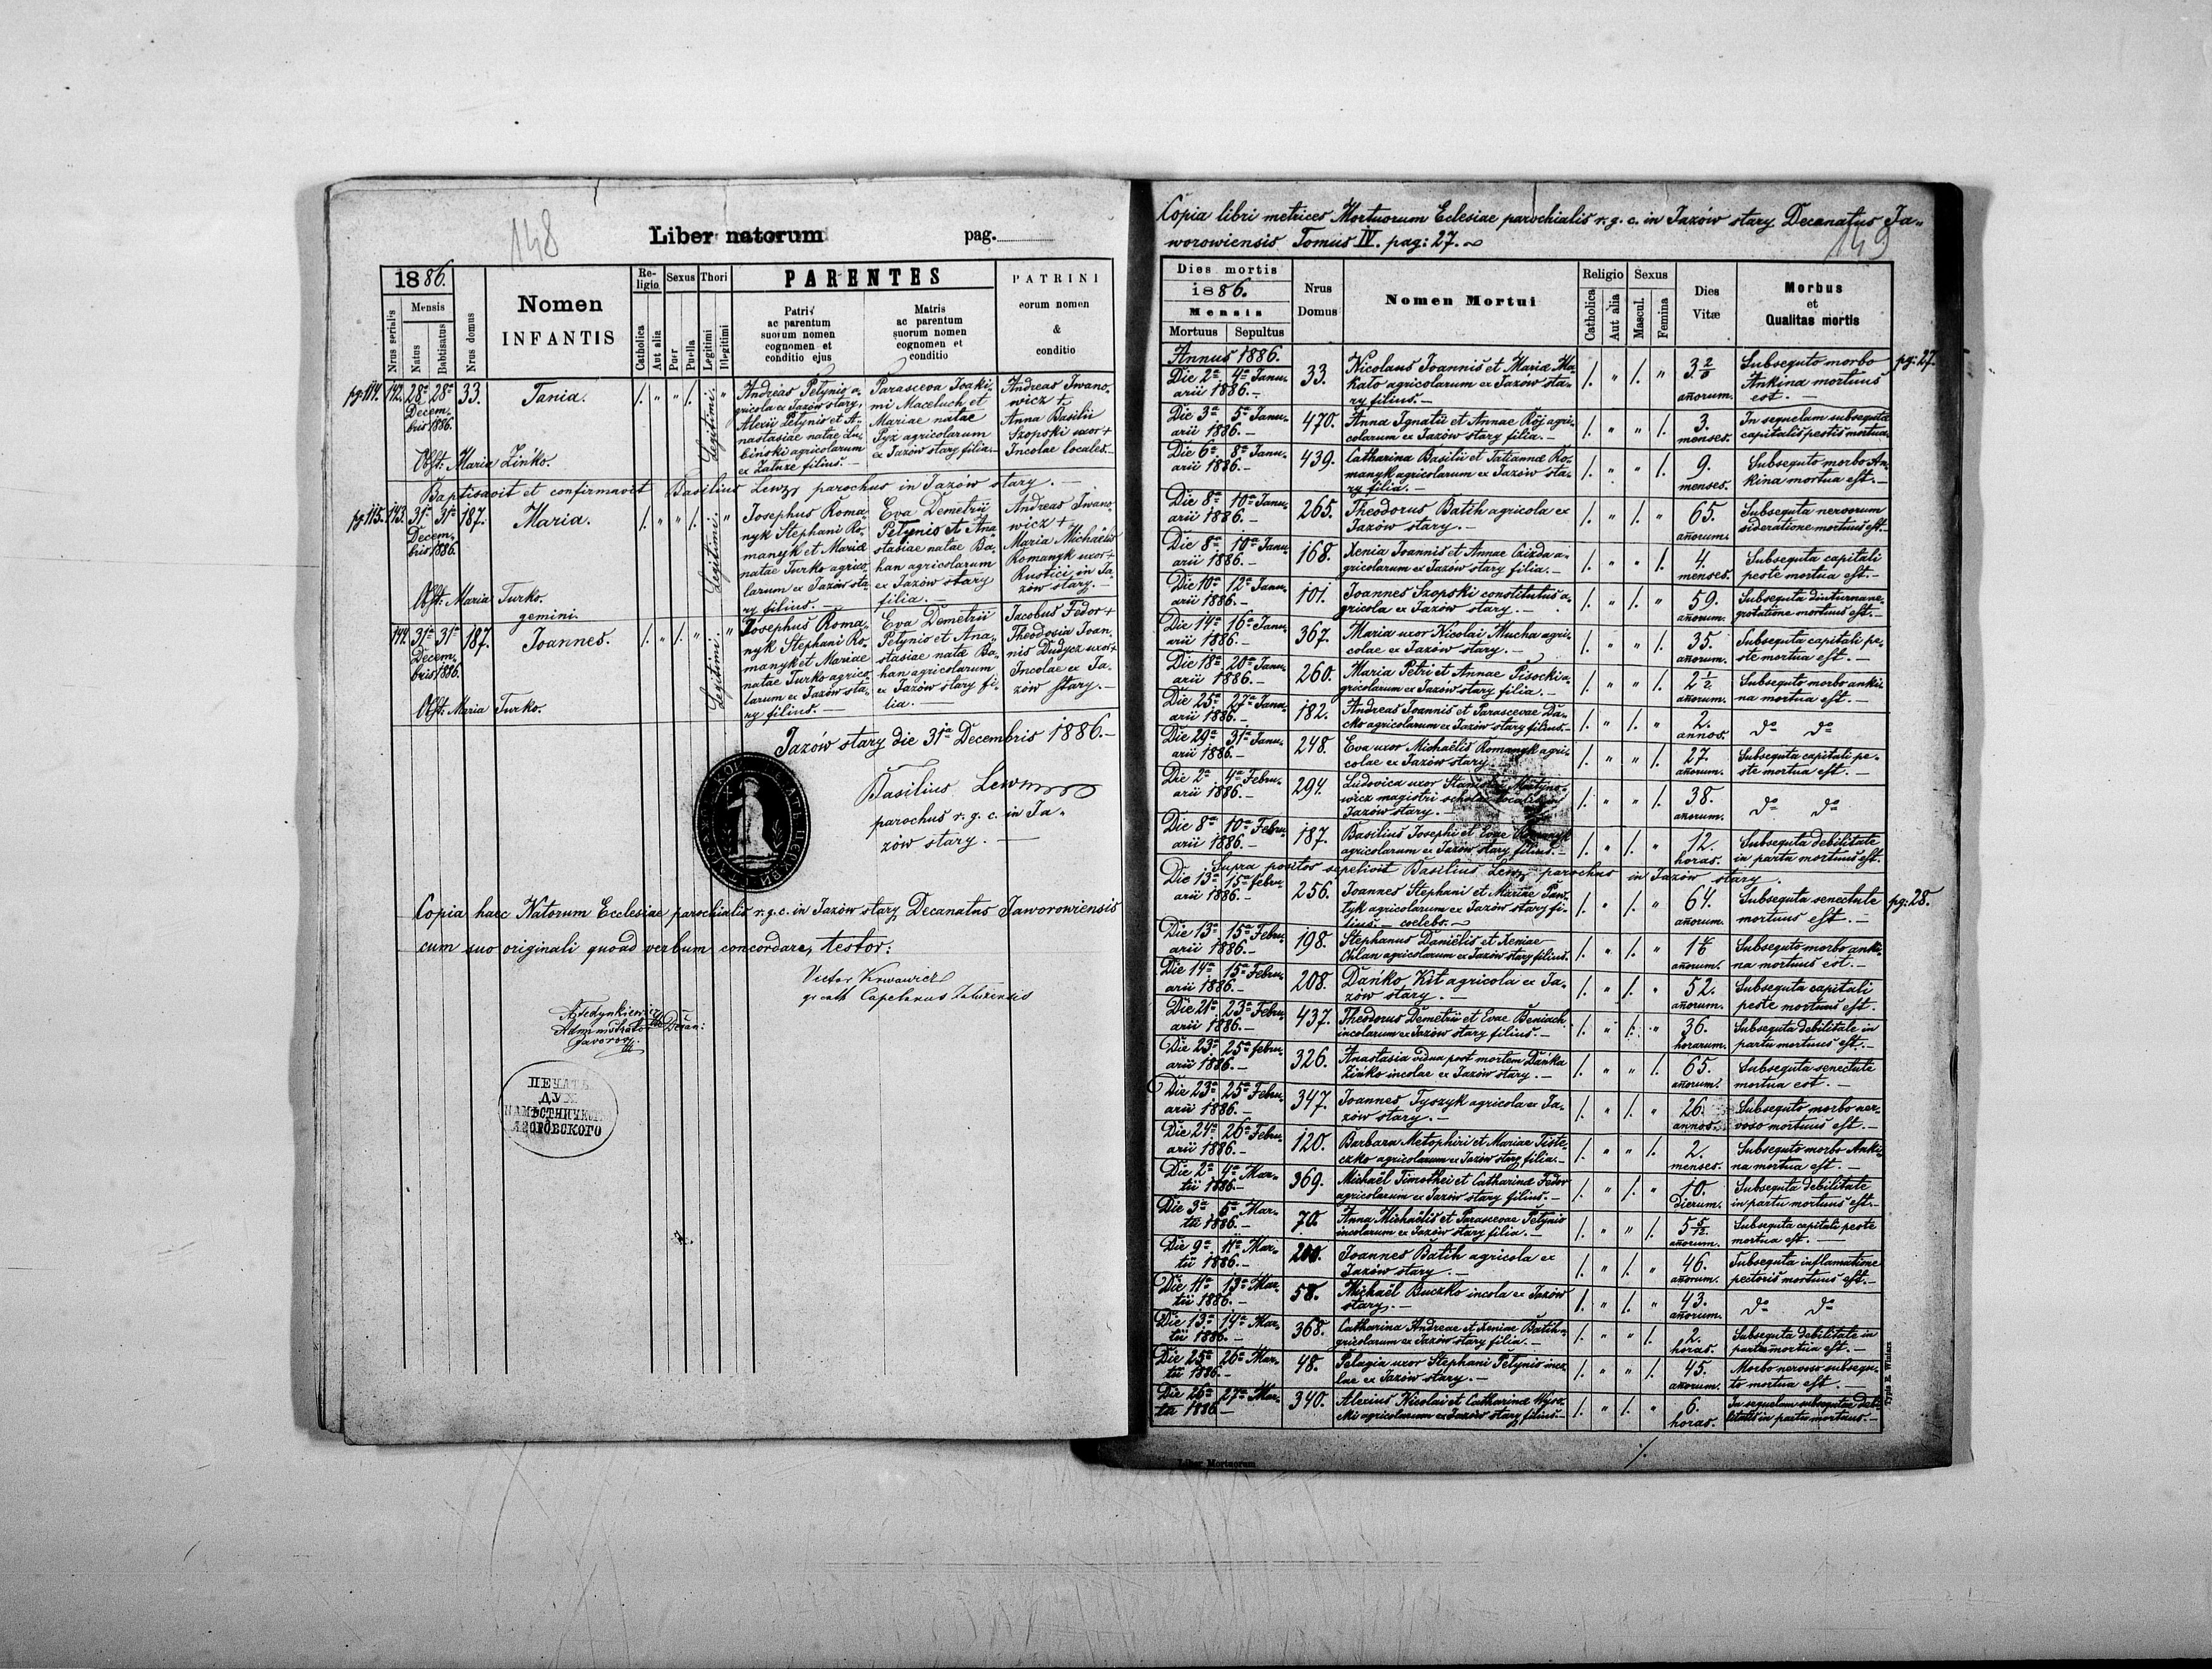 148
Liber natorum pag.
1886.
Mensis
Nrus serialis
Natus
Babtisatus
Nrus domus
Nomen
INFANTIS
Religio
Catholica
Aut alia
Sexus
Puer
Puella
Thori
Legitimi
Illegitimi
PARENTES
Patris
ac parentum
suorum nomen
cognomen et
conditio ejus
Matris
ac parentum
suorum nomen
cognomen et
conditio
PATRINI
eorum nomen
&
conditio
pg. 114. 142. 28a 28a Decembris 1886. 33. Tania. Legitimi.
Andreas Petynio a-
gricola ex Jazów stary,
Alexii Petynio et A-
nastasiae natae Lu-
binski agricolarum
ex Zaluze filius. —
Parasceva Joaki-
mi Maceluch et
Mariae natae
Pyz agricolarum
ex Jazów stary filia. —
Andreas Iwano-
wicz +
Anna Basilii
Szopski uxor +
Incolae locales. —
Obst: Maria Zinko.
Baptisavit et confirmavit Basilius Lewy parochus in Jazów stary. —
pg. 115. 143. 31a 31a Decembris 1886. 187. Maria. Legitimi.
Josephus Roma-
nyk Stephani Ro-
manyk et Maria
natae Turko agrico-
larum ex Jazów sta-
ry filius. —
Eva Demetrii
Petynio et Ana-
stasiae natae Ba-
han agricolarum
ex Jazów stary
filia. —
Andreas Iwano-
wicz +
Maria Michaëlis
Romanyk uxor +
Rustici in Ja-
zów stary. —
Obst: Maria Turko.
gemini.
144. 31a 31a Decembris 1886. 187. Joannes. Legitimi.
Josephus Roma-
nyk Stephani Ro-
manyk et Mariae
natae Turko agrico-
larum ex Jazów sta-
ry filius. —
Eva Demetrii
Petynio et Ana-
stasiae natae Ba-
han agricolarum
ex Jazów stary fi-
lia. —
Jacobus Fedor +
Theodosia Joan-
nis Dudycz uxor +
Incolae ex Ja-
zów stary. —
Obst: Maria Turko.
Jazów stary die 31a Decembris 1886. —
Basilius Lewy
parochus r. g. c. in Ja-
zów stary. —
Copia haec Natorum Ecclesiae parochialis r. g. c. in Jazów stary Decanatus Jaworowiensis
cum suo originali quoad verbum concordare, testor:
Victor
gr cath Capelanus
ПЕЧАТЬ
ДУХ
149
Copia libri metrices Mortuorum Eclesiae parochialis r. g. c. in Jazów stary Decanatus Ja-
worowiensis Tomus IV. pag: 27.
Dies mortis
1886.
Mensis
Mortuus Sepultus
Nrus
Domus
Nomen Mortui
Religio
Catholica
Aut alia
Sexus
Mascul.
Femina
Dies
Vitæ
Morbus
et
Qualitas mortis
Annus 1886. pg: 27.
Die 2a 4a Januarii 1886. — 33. Nicolaus Joannis et Maria Makato agricolarum ex Jazów stary filius. — 3 annorum. Subseguto morbo Ankina mortuus est. —
Die 3a 5a Januarii 1886. — 470. Anna Ignatii et Annae Rój agricolarum ex Jazów stary filia. — 3. menses. In sequelam subsegutæ capitalis pestis mortua.
Die 6a 8a Januarii 1886. — 439. Catharina Basilii et Tatianna Romanyk agricolarum ex Jazów stary filia. — 9. menses. Subseguto morbo Ankina mortua est. —
Die 8a 10a Januarii 1886. — 265. Theodorus Batih agricola ex Jazów stary. — 65. annorum. Subseguta nervorum sideratione mortuus est. —
Die 8a 10a Januarii 1886. — 168. Xenia Joannis et Annae Czizda agricolarum ex Jazów stary filia. — 4. menses. Subseguta capitali peste mortua est. —
Die 10a 12a Januarii 1886. — 101. Joannes Szopski constitutus agricola ex Jazów stary. — 59. annorum. Subseguta diuturna negrotatione mortuus est. —
Die 14a 16a Januarii 1886. — 367. Maria uxor Nicolai Mucha agricolae ex Jazów stary. — 35. annorum. Subseguta capitali peste mortua est. —
Die 18a 20a Januarii 1886. — 260. Maria Petri et Annae Pisocki agricolarum ex Jazów stary filia. — 2 1/2 annorum. Subseguto morbo ankina mortua est. —
Die 25a 27a Januarii 1886. — 182. Andreas Joannis et Parascevae Dacko agricolarum ex Jazów stary filius. — 2. annos. do do
Die 29a 31a Januarii 1886. — 248. Eva uxor Michaëlis Romanyk agricolae ex Jazów stary. 27. annorum. Subseguta capitali peste mortua est. —
Die 2a 4a Februarii 1886. — 294. Ludovica uxor Stanislai Martynowicz magistri scholae localis in Jazów stary. — 38. annorum. do do
Die 8a 10a Februarii 1886. — 187. Basilius Josephi et Evae Romanyk agricolarum ex Jazów stary filius. — 12. horas. Subseguta debilitate in partu mortuus est.
Supra positos sepelivit Basilius Lewy parochus in Jazów stary.
Die 13a 15a Februarii 1886. — 256. Joannes Stephani et Mariae Pawtyk agricolarum ex Jazów stary filius. — coelebs. — 64. annorum. Subseguta senectute mortuus est. — pg: 28.
Die 13a 15a Februarii 1886. — 198. Stephanus Daniëlis et Xeniae Chlan agricolarum ex Jazów stary filius. annorum. Subseguto morbo ankina mortuus est. —
Die 14a 15a Februarii 1886. — 208. Dańko Kit agricola ex Jazów stary. — 52. annorum. Subseguta capitali peste mortuus est.
Die 21a 23a Februarii 1886. — 437. Theodorus Demetrii et Evae Beniach incolarum ex Jazów stary filius. — 36. horarum. Subseguta debilitate in partu mortuus est. —
Die 23a 25a februarii 1886. — 326. Anastasia vidua post mortem Dańka Zińko incolae ex Jazów stary. — 65. annorum. Subseguta senectute mortua est. —
Die 23a 25a Februarii 1886. — 347. Joannes Tyszyk agricola ex Jazów stary. — 26. annos. Subseguto morbo nervoso mortuus est. —
Die 24a 26a Februarii 1886. — 120. Barbara Metophiri et Mariae Tisteczko agricolarum ex Jazów stary filia. — 2. menses. Subseguto morbo Ankina mortua est. —
Die 2a 4a Martii 1886. — 369. Michaël Timothei et Catharina Fedor agricolarum ex Jazów stary filius. — 10. Dierum. Subseguta debilitate in partu mortuus est. —
Die 3a 5a Martii 1886. — 70. Anna Michaëlis et Parascevae Petynio incolarum ex Jazów stary filia. — 5 5/12 annorum. Subseguta capitali peste mortua est. —
Die 9a 11a Martii 1886. — 200. Joannes Batih agricola ex Jazów stary. — 46. annorum. Subseguta inflamatione pectoris mortuus est. —
Die 11a 13a Martii 1886. — 58. Michaël Buczko incola ex Jazów stary. — 43. annorum. do do
Die 13a 14a Martii 1886. — 368. Catharina Andreae et Xeniae Batih agricolarum ex Jazów stary filia. — 2. horas. Subseguta debilitate in partu mortua est. —
Die 25a 26a Martii 1886. — 48. Pelagia uxor Stephani Petynio incolae ex Jazów stary. — 45. annorum. Morbo nervoso subseguto mortua est. —
Die 26a 27a Martii 1886. — 340. Alexius Nicolai et Catharina Wysocki agricolarum ex Jazów stary filius. — 6. horas. In sequelam subsegutæ debilitatis in partu mortuus. —
Typis E. Winiarz
Liber Mortuorum